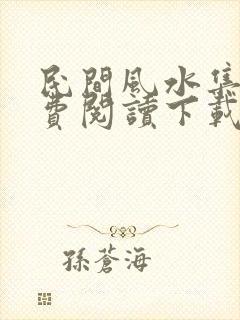 民間風水集
費閱讀下載
孫蒼海